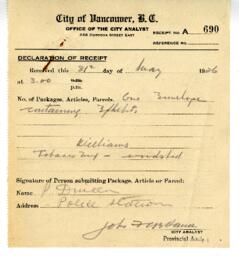 City of Vancouver, B.C.
OFFICE OF THE CITY ANALYST
236 CORDOVA STREET EAST
RECEIPT No. A 690
REFERENCE No.
DECLARATION OF RECEIPT
Received this 21st day of May 1926
at 3.00 a.m. p.m.
No. of Packages, Articles, Parcels. One Envelope
containing Exhibits
Williams
Tobacco
Signature of Person submitting Package, Article or Parcel:
Name P
Address Police Station
John F.
CITY ANALYST
Provincial Analyst